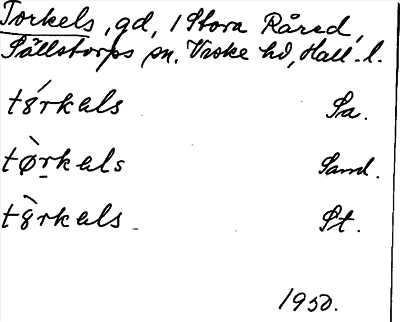 Torkels, gd, i Stora Råred,
Sällstorps sn, Viske hd, Hall. l.
tórkəls Sa.
tø̀rkəls Sand.
tòrkəls St.
1950.